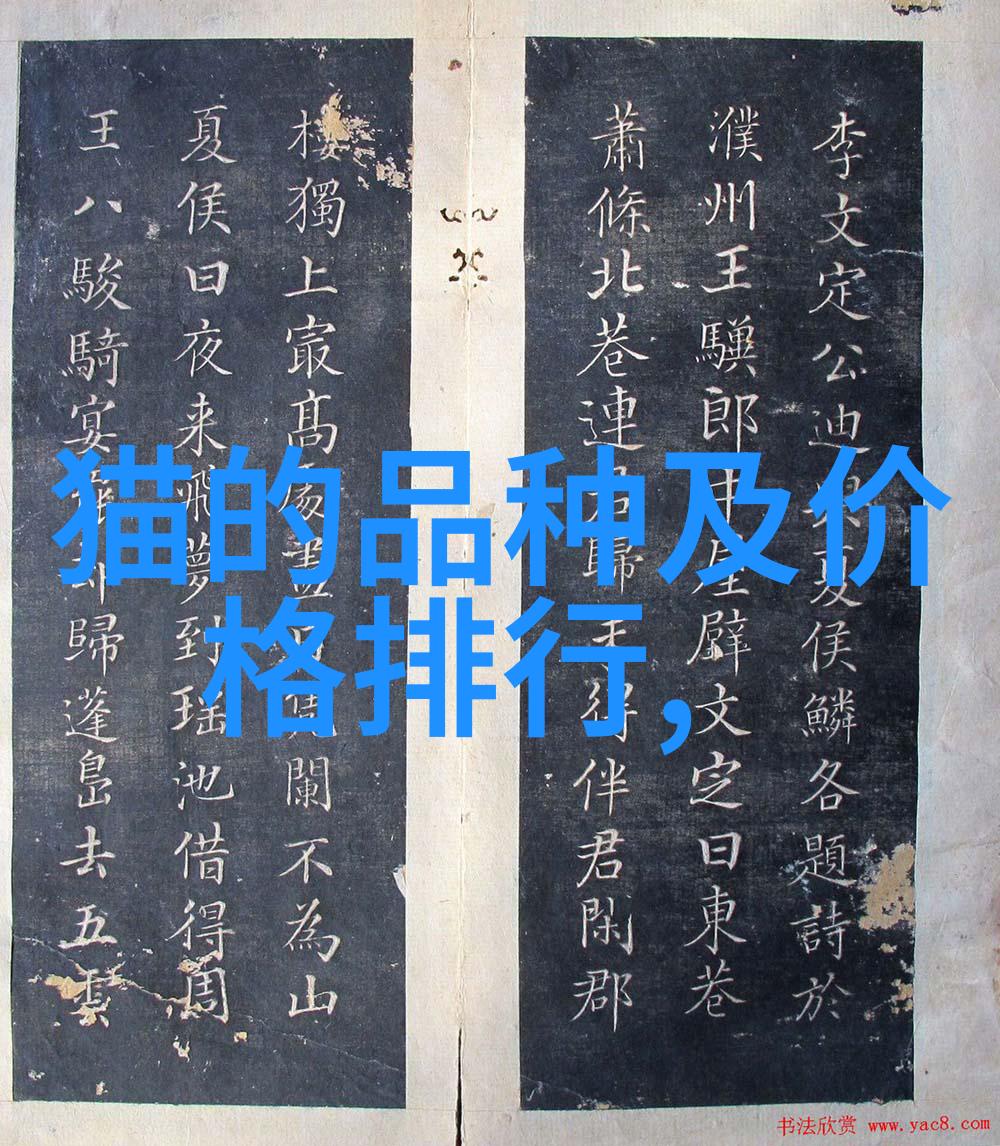 李文定公迪與夏侯鱗各題詩於
濮州王驥郎中屋壁文定曰東巷
蕭條北巷連歸得伴君閑郡
樓獨上最髙處盡日闌不為山
夏侯曰夜来飛夢到瑶池借得周
王八駿騎宴罷却歸蓬島去五雲
猫的品种及价
格排行,
书法欣赏 www.yac8.com